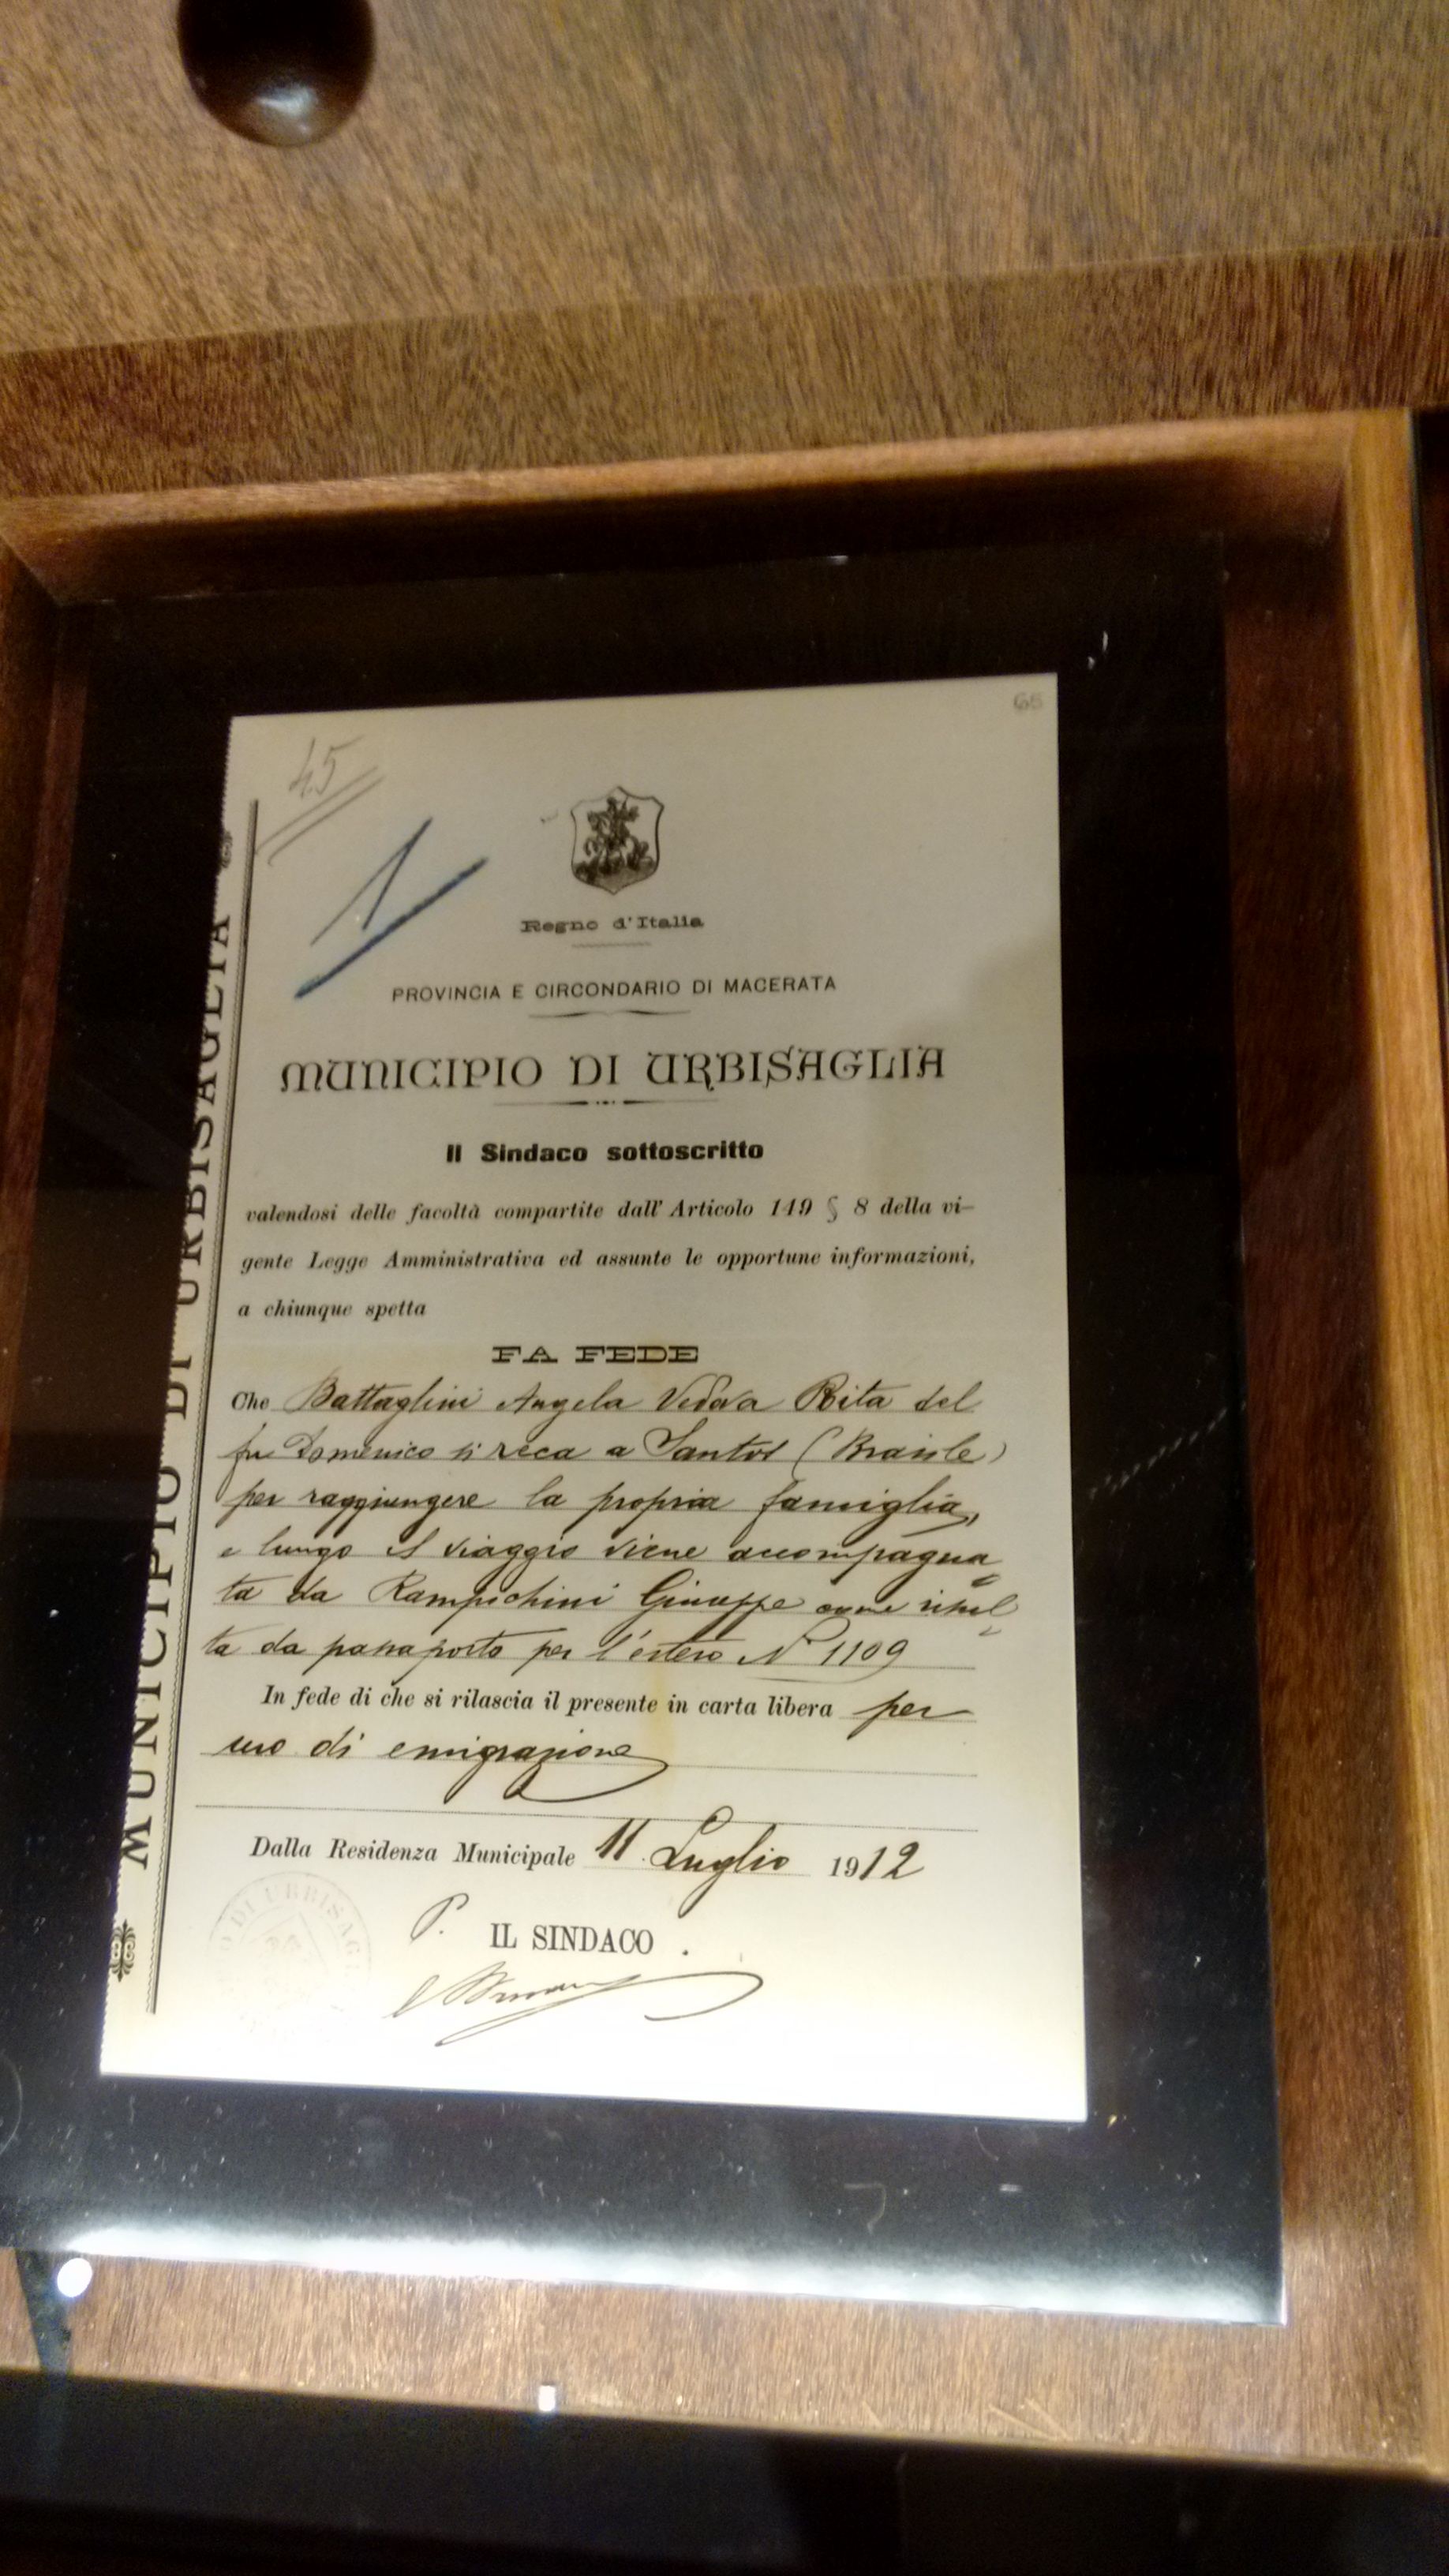 65
45
1
Regno d'Italia
PROVINCIA E CIRCONDARIO DI MACERATA
MUNICIPIO DI URBISAGLIA
Il Sindaco sottoscritto
valendosi delle facoltà compartite dall' Articolo 149 § 8 della vi-
gente Legge Amministrativa ed assunte le opportune informazioni,
a chiunque spetta
FA FEDE
Che Battaglini Angela Vedova Rita del
fu Domenico si reca a Santos (Brasile)
per raggiungere la propria famiglia,
e lungo il viaggio viene accompagna
ta da Rampichini Giuseppe come risul
ta da passaporto per l'estero N° 1109
In fede di che si rilascia il presente in carta libera per
uso di emigrazione
Dalla Residenza Municipale 11 Luglio 1912
P. IL SINDACO.
MUNICIPIO DI URBISAGLIA
DI URBISAG